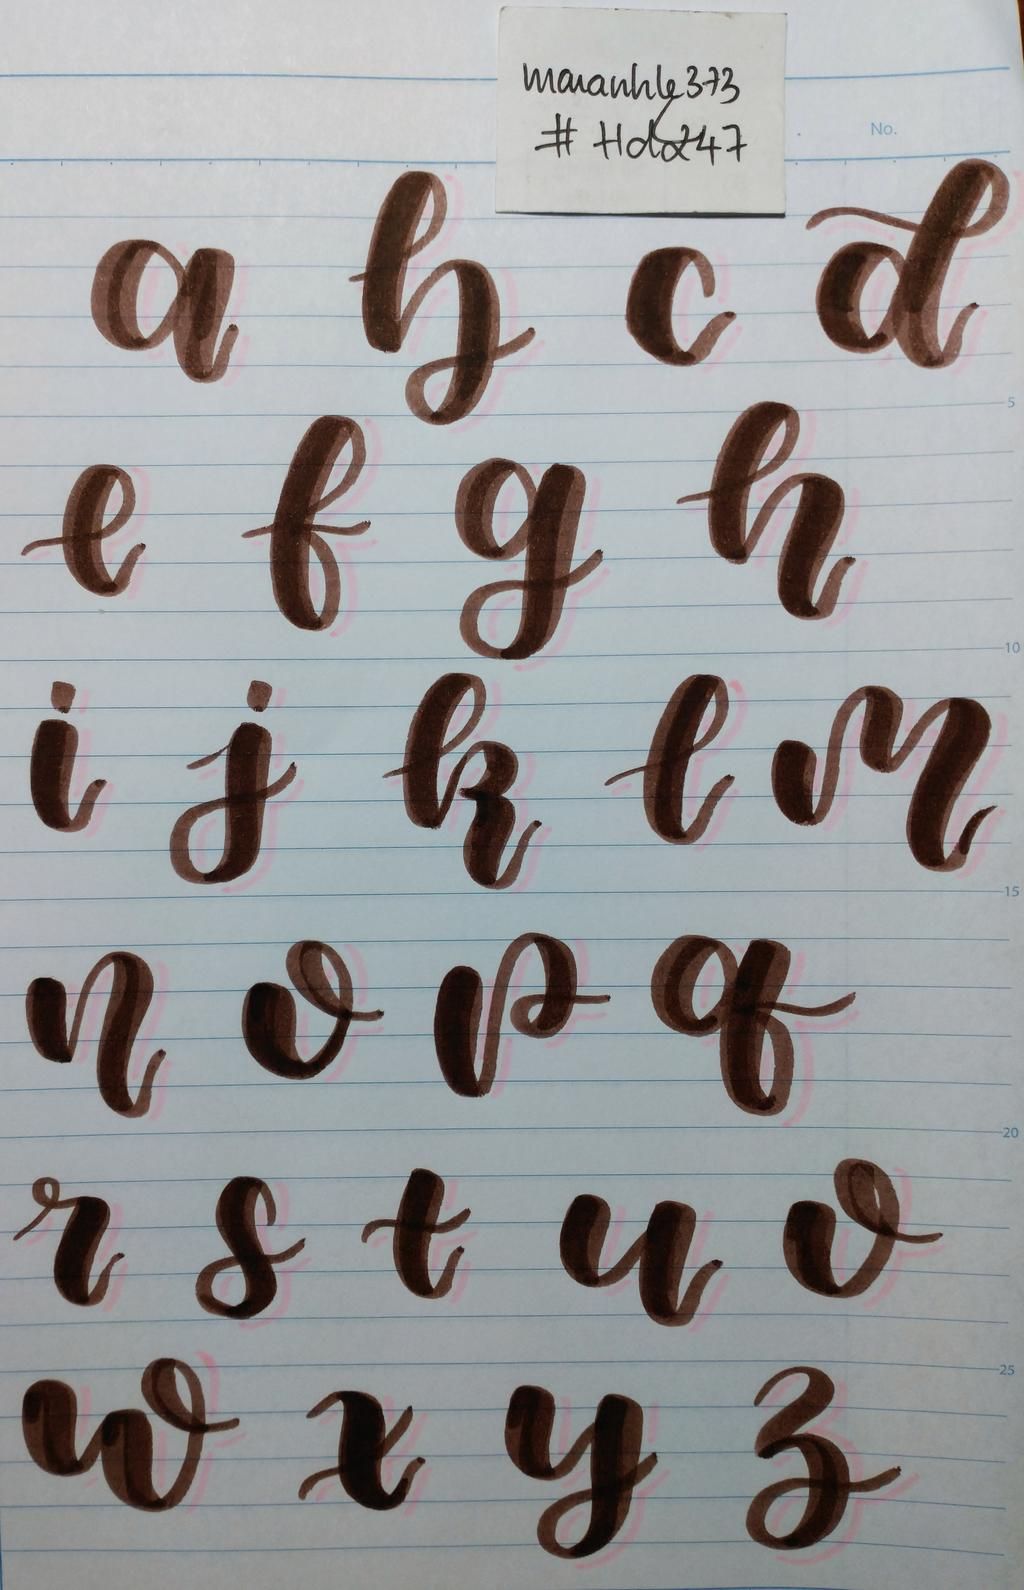 maianhle373
# Hda247
No.
a b c d
5
e f g h
10
i j k l m
15
n o p q
20
r s t u v
25
w x y z